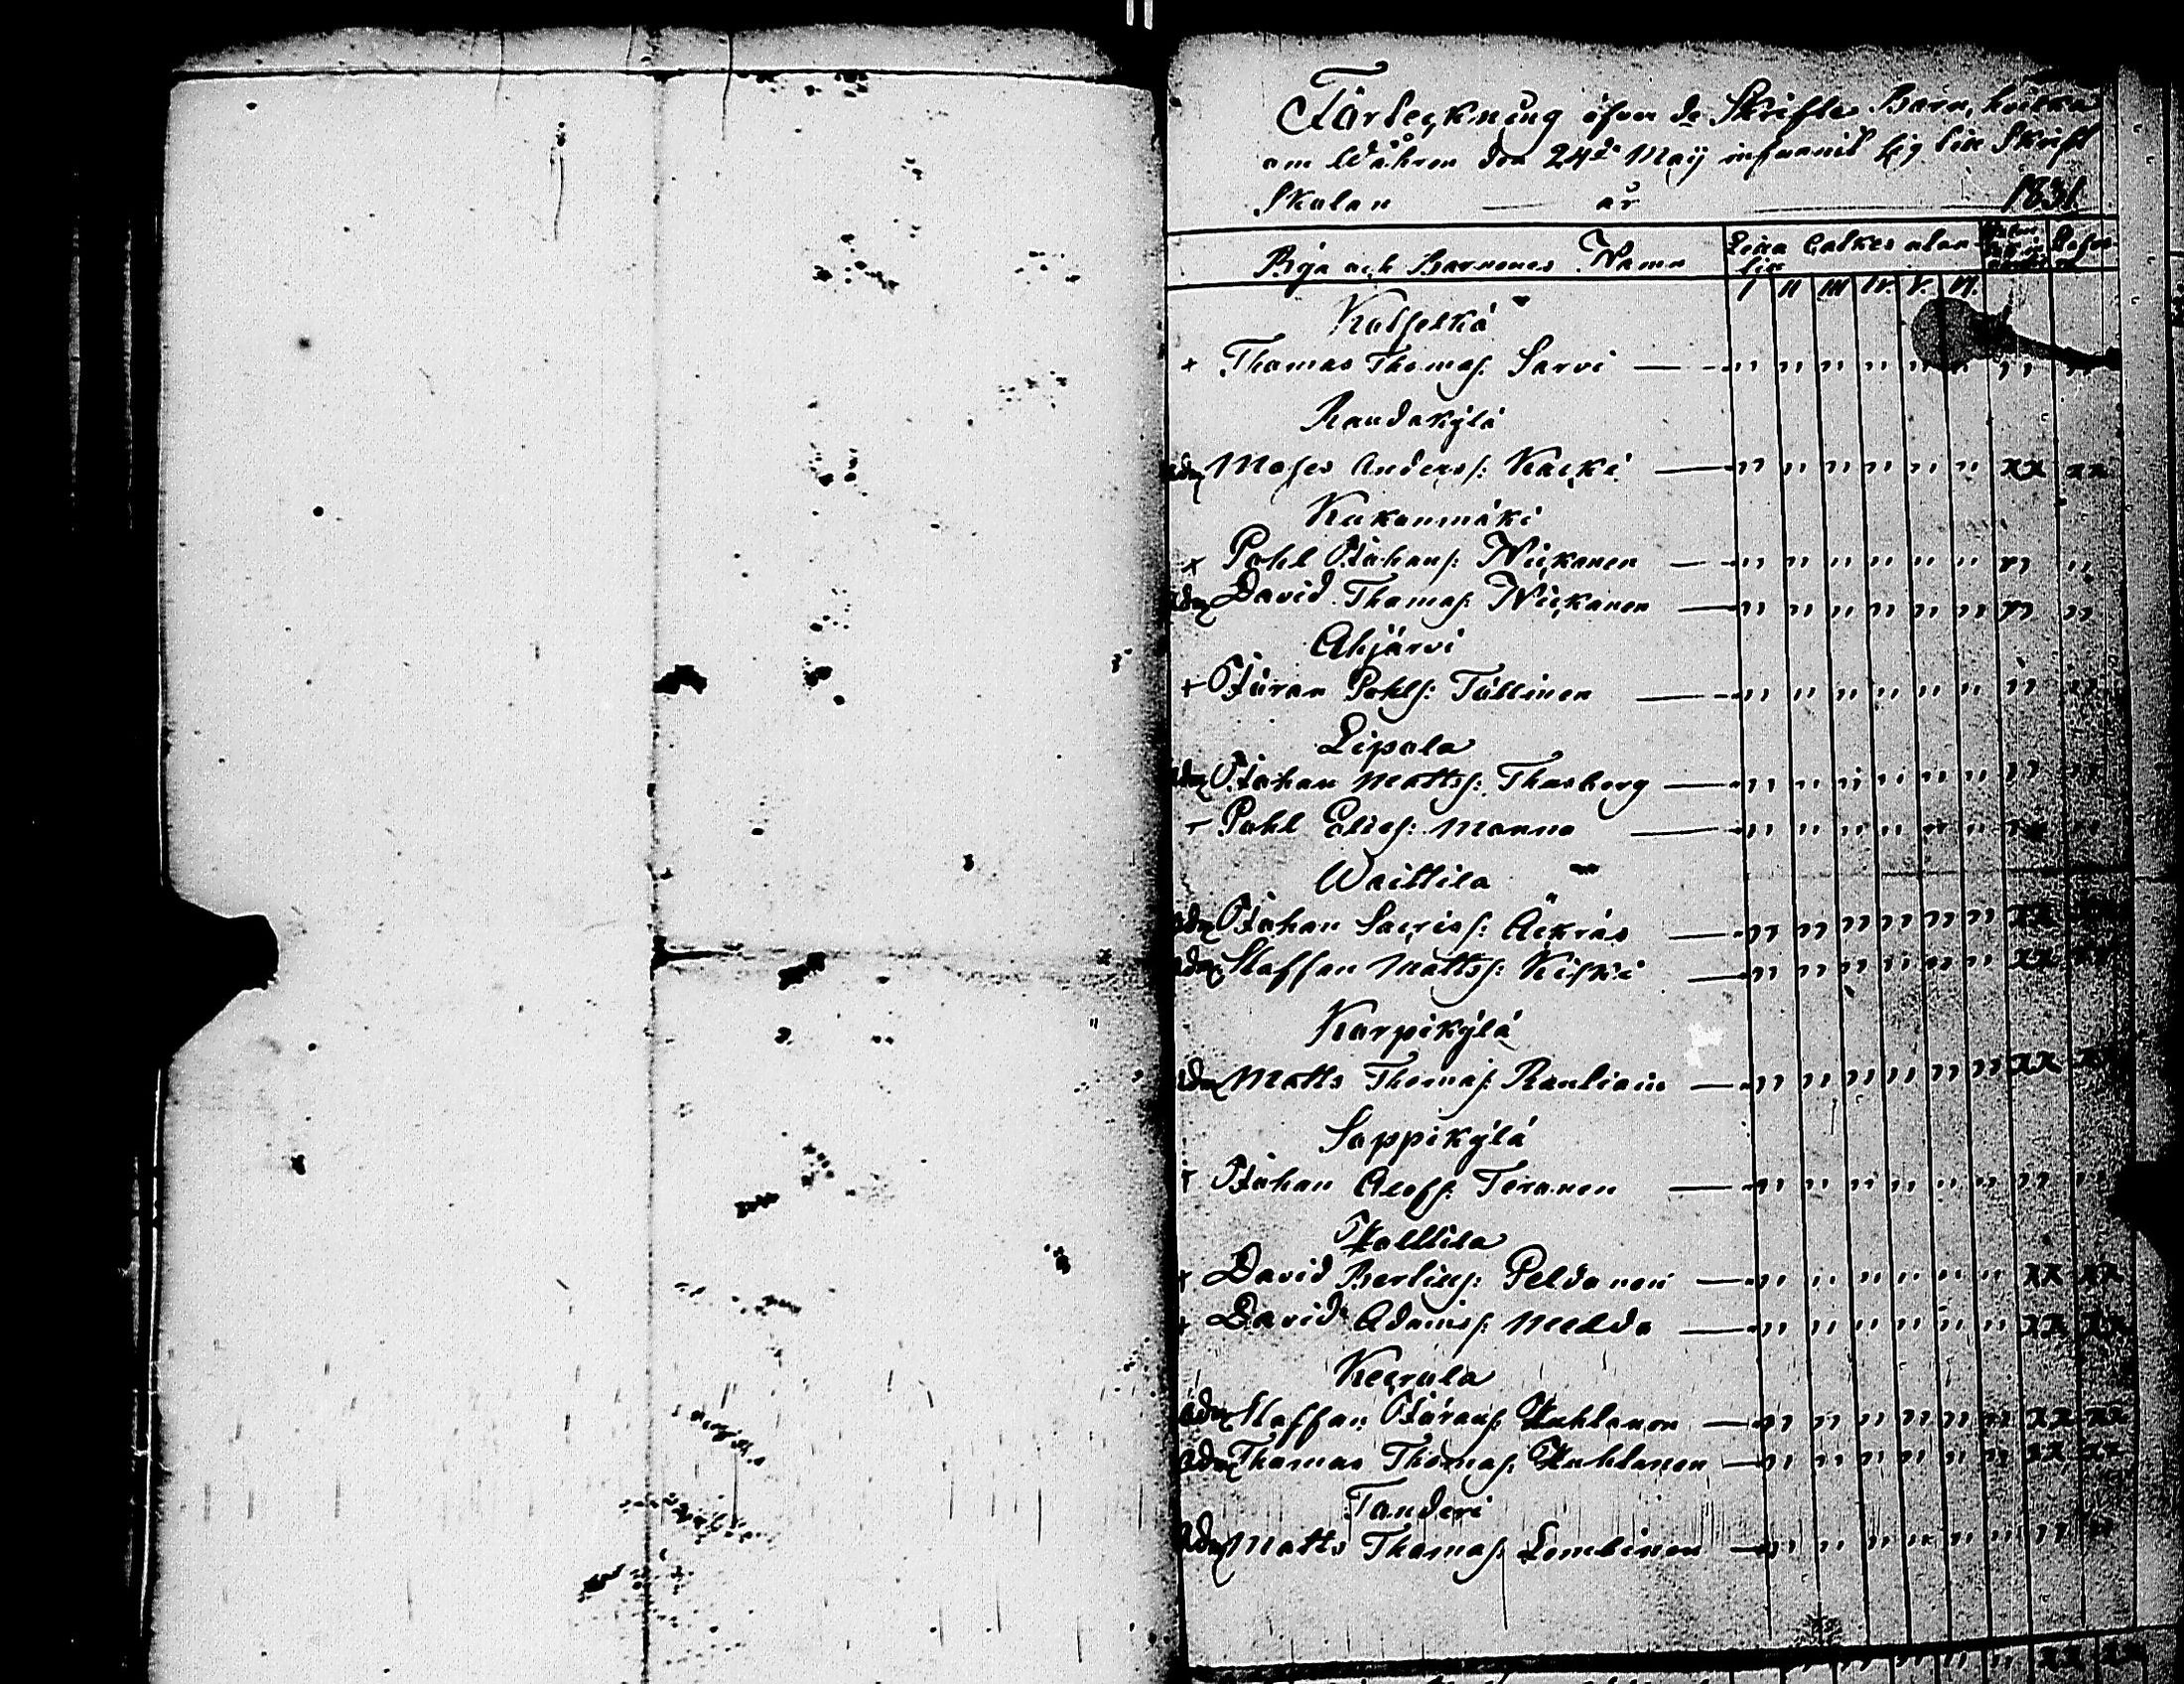 Förteckning öfver de Skrifte Barn, hvilka
om Våhren den 24de Maij infunnit sig till Skrift
Skolan år 1831.
Bya och Barnenes Namn
I II III IV. V. VI.
Kolselkä
+ Thomas Thomas: Sarvi — " " " " " " " "
Raudakylä
adm Moses Anders: Kaeki — " " " " " " xx xx
Kukonmäki
+ Pohl Johans: Wickanen — " " " " " " " "
adm David Thomas: Wickanen — " " " " " " " "
Ahjärvi
+ Göran Pohls: Tällinen — " " " " " " " "
Lipola
adm Johan Matts: Thusberg — " " " " " " " "
+ Pohl Elies: Monno — " " " " " " " "
Waittila
adm Johan Lacris: Äikräs — " " " " " " xx
adm Staffan Matts: Kiski — " " " " " " xx xx
Korpikylä
adm Matts Thomas: Rauliain — " " " " " " xx xx
Soppikylä
+ Johan Olofs: Teranen — " " " " " " " "
Holttila
+ David Bertils: Peldonen — " " " " " " xx xx
+ David Adams: Mulda — " " " " " " xx xx
Keerala
adm Staffan Görans: Huhlanen — " " " " " " xx xx
adm Thomas Thomas: Huhlanen — " " " " " " xx xx
Tonderi
adm Matts Thomas: Lembinen — " " " " " " " "